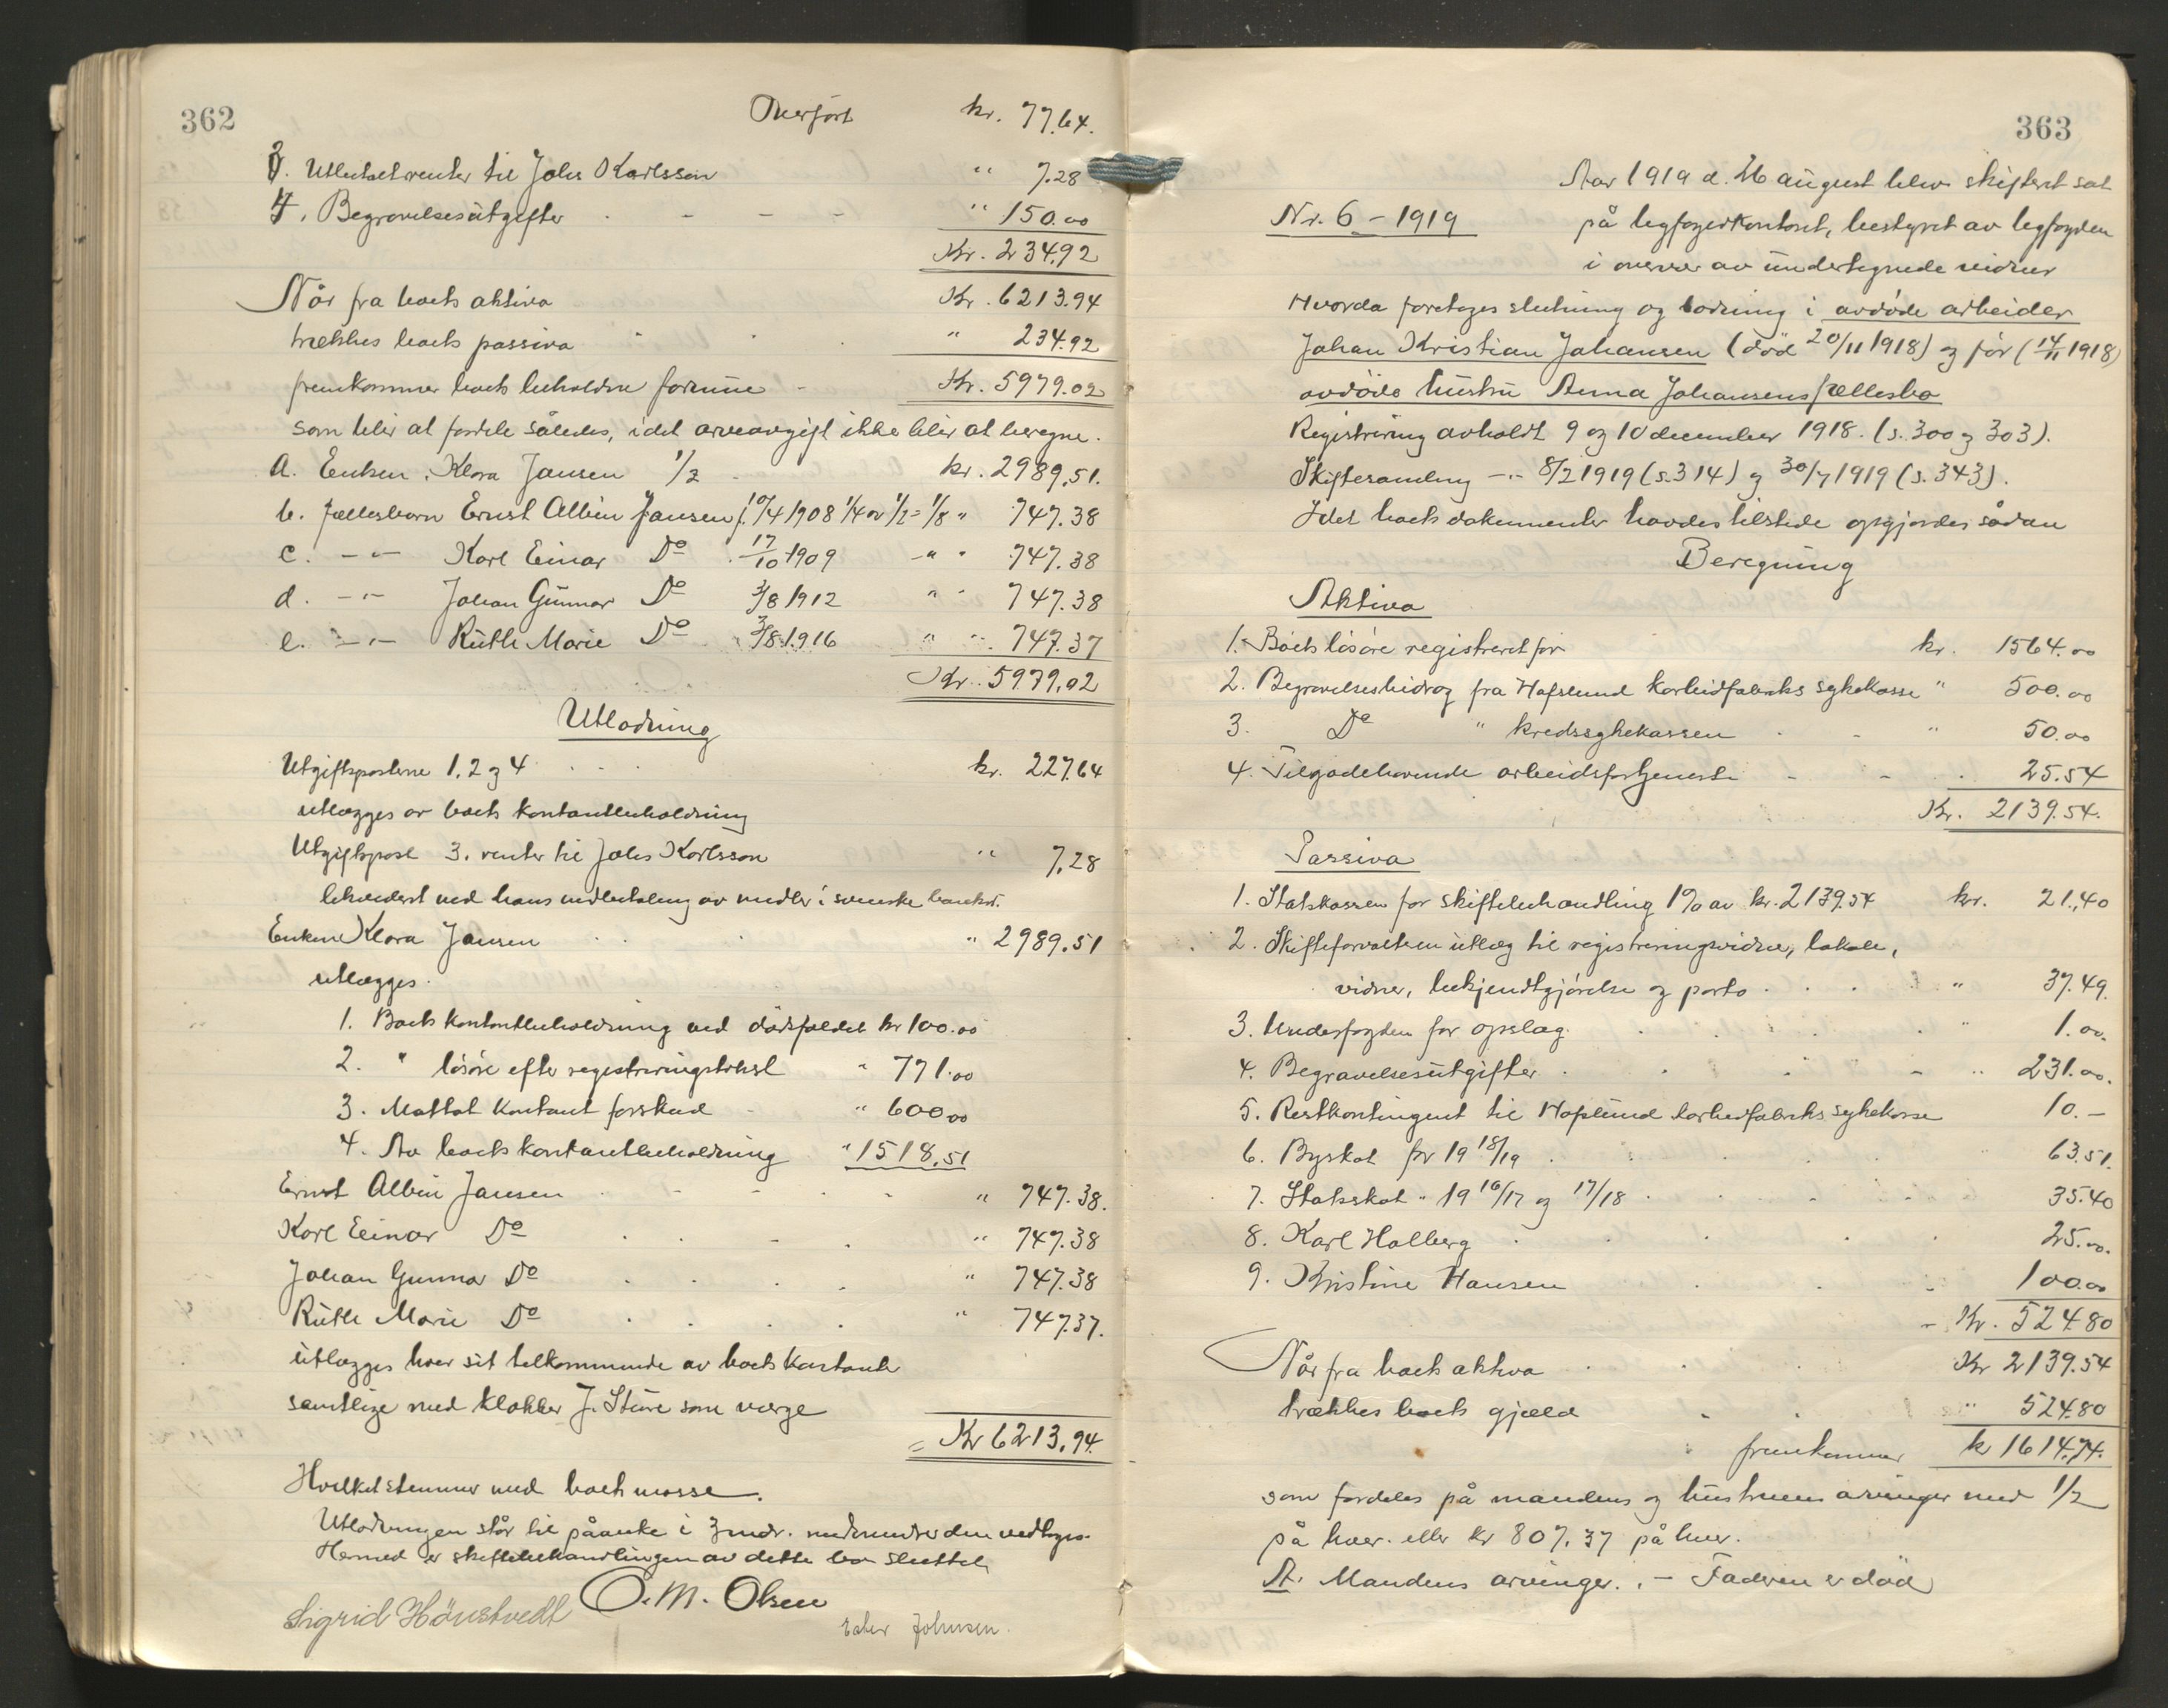 362
Overført kr. 77.64.
3. Utlutalt renter til Johs Karlsson " 7.28
4. Begravelsesutgifter " 150.00
Kr. 234.92
Når fra boets aktiva Kr. 6213.94
trækkes boets passiva " 234.92
fremkommer boets beholdne formue Kr. 5979.02
som blir at fordele således, idet arveavgift ikke blir at beregne.
A. Enken Klara Jansen 1/2 kr. 2989,51.
b. fællesbarn Ernst Albin Jansen f. 10/4 1908 1/4 av 1/2 = 1/8 " 747.38
c. -"- Karl Einar Do 17/10 1909 -" " 747.38
d. -"- Johan Gunnar Do 3/8 1912 " " 747.38
e. -"- Ruth Marie Do 3/8 1916 " " 747.37
Kr. 5979,02
Utlodning
Utgiftsposterne 1, 2 og 4 kr. 227.64
utlægges av boets kontantbeholdning
Utgiftspost 3. renter til Johs Karlsson " 7,28
likvidert ved hans indbetaling av midler i svenske
Enken Klara Jansen " 2989.51
utlægges.
1. Boets kontantbeholdning ved dødsfaldet kr 100.00
2. " løsøre efter registreringstakst " 771.00
3. Mottat kontant forskud " 600.00
4. Av boets kontantbeholdning " 1518,51
Ernst Albin Jansen " 747.38.
Karl Einar Do " 747.38
Johan Gunnar Do " 747.38
Ruth Marie Do " 747.37.
utlægges hver sit tilkommende av boets kontante
samtlige med klokker J. Sture som værge
= Kr 6213,94.
Hvilket stemmer med boets masse.
Utlodningen står til påanke i 3 mdr.
Hermed er skiftebehandlingen av dette bo sluttet
O. M. Olsen
Sigrid Hönstvedt Ester Johnsen.
363
Aar 1919 d. 26 august blev skifteret sat
Nr. 6 – 1919 på byfogedkontoret, bestyret av byfogden
i overvær av undertegnede vidner
Hvorda foretoges slutning og lodning i avdøde arbeider
Johan Kristian Johansen (död 20/11 1918) og før (14/11 1918)
avdøde hustru Anna Johansens fællesbo
Registrering avholdt 9 og 10 december 1918. (s. 300 og 303).
Skiftesamling -"- 8/2 1919 (s. 314) og 30/7 1919 (s. 343).
Idet boets dokumenter havdes tilstede opgjordes sådan
Beregning
Aktiva
1. Boets løsøre registreret for kr. 1564.00
2. Begravelsesbidrag fra Hafslund karbidfabriks sykekasse " 500.00
3. Do " kredssykekassen " 50.00
4. Tilgodehavende arbeidsfortjeneste 25.54
Kr. 2139.54.
Passiva
1. Statskassen for skiftebehandling 1% av kr. 2139.54 kr. 21,40
2. Skifteforvalteren utlæg til registreringsvidner, lokale,
vidner, bekjendtgjørelse og porto " 37.49.
3. Underfogden for opslag " 1.00.
4. Begravelsesutgifter " 231.00.
5. Restkontingent til Hafslund karbidfabriks sykekasse 10.–
6. Byskat for 19 18/19 63.51.
7. Statsskat " 19 16/17 og 17/18 35.40
8. Karl Halberg 25.00.
9. Kristine Hansen 100.00
Kr. 524.80
Når fra boets aktiva Kr 2139.54
trækkes boets gjæld " 524.80
fremkommer k 1614.74.
som fordeles på mandens og hustruens arvinger med 1/2
på hver. eller kr 807,37 på hver.
A. Mandens arvinger. – Faderen er död